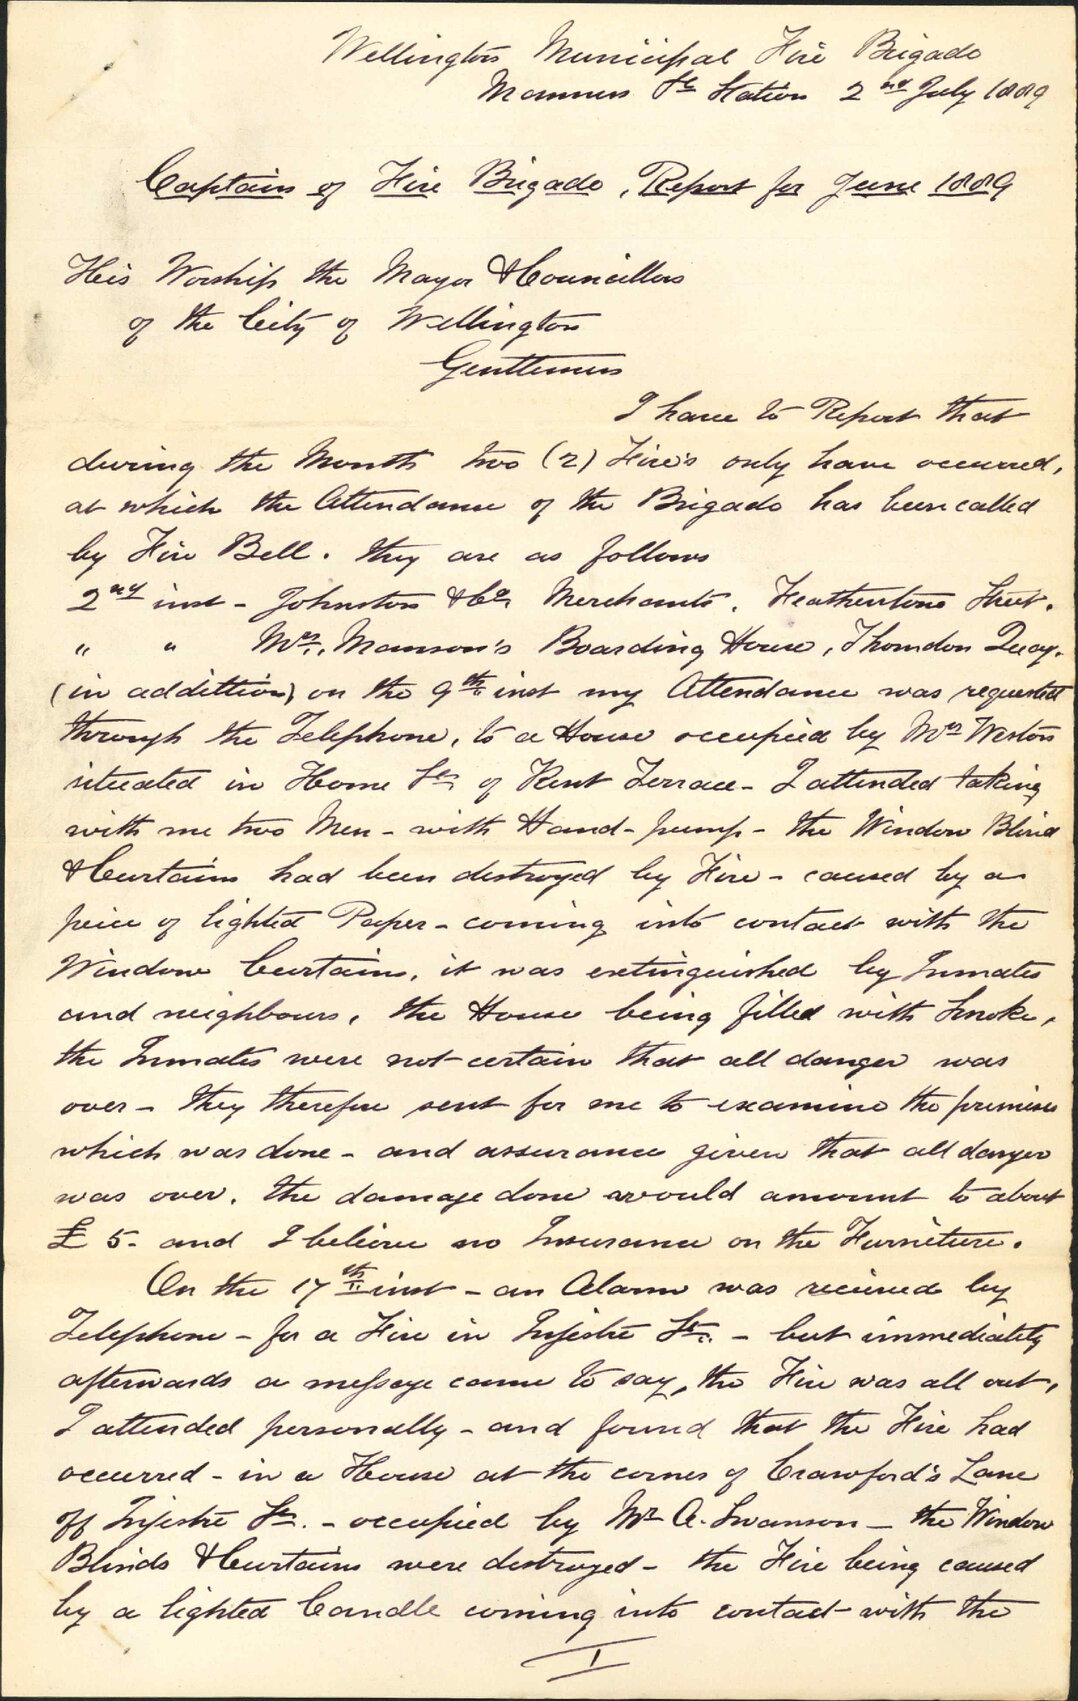 Wellington Municipal Fire Brigade
Manners St Station 2nd July 1889
Captain of Fire Brigade, Report for June 1889
His Worship the Mayor & Councillors
of the City of Wellington
Gentlemen
I have to Report that
during the Month two (2) Fire's only have occurred,
at which the Attendance of the Brigade has been called
by Fire Bell. They are as follows
2nd inst - Johnston & Co, Merchants. Featherstone Street.
" " Mrs. Manson's Boarding House, Thorndon Quay.
(in addittion) on the 9th inst my Attendance was requested
through the Telephone, to a House occupied by Mrs Weston
situated in Home St of Kent Terrace - I attended taking
with me two Men - with Hand-pump - the Window Blind
& Curtains had been destroyed by Fire - caused by a
peice of lighted Paper - coming into contact with the
Window Curtains, it was extinguished by Inmates
and neighbours, the House being filled with Smoke,
the Inmates were not certain that all danger was
over - they therefore sent for me to examine the premises
which was done - and assurance given that all danger
was over. the damage done would amount to about
£5- and I believe no Insurance on the Furniture.
On the 17th inst - an Alarm was recieved by
Telephone - for a Fire in Ingestre St. - but immediately
afterwards a message came to say, the Fire was all out,
I attended personally - and found that the Fire had
occurred - in a House at the corner of Crawford's Lane
off Ingestre St. - occupied by Mr A. Swanson - the Window
Blinds & Curtains were destroyed - the Fire being caused
by a lighted Candle coming into contact with the
1